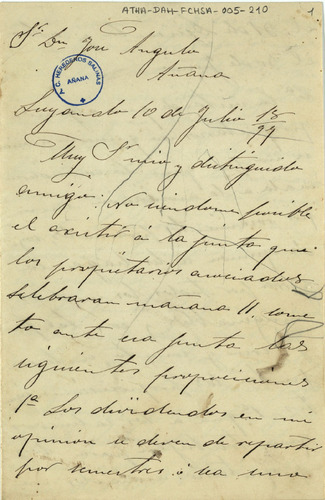 ATHA-DAH-FCHSA-005-210
1
Sr. Dn José Angulo
Añana
C. HEREDEROS SALINAS
AÑANA
Luyando 10 de Julio 18/99
Muy Sr mio y distinguido
amigo: No siendome posible
el asistir á la junta que
los propietarios asociados
selebraran mañana 11. some
to ante esa junta las
siguientes proposiciones
1ª Los dividendos en mi
opinion se deven de repartir
por semestres ó sea uno